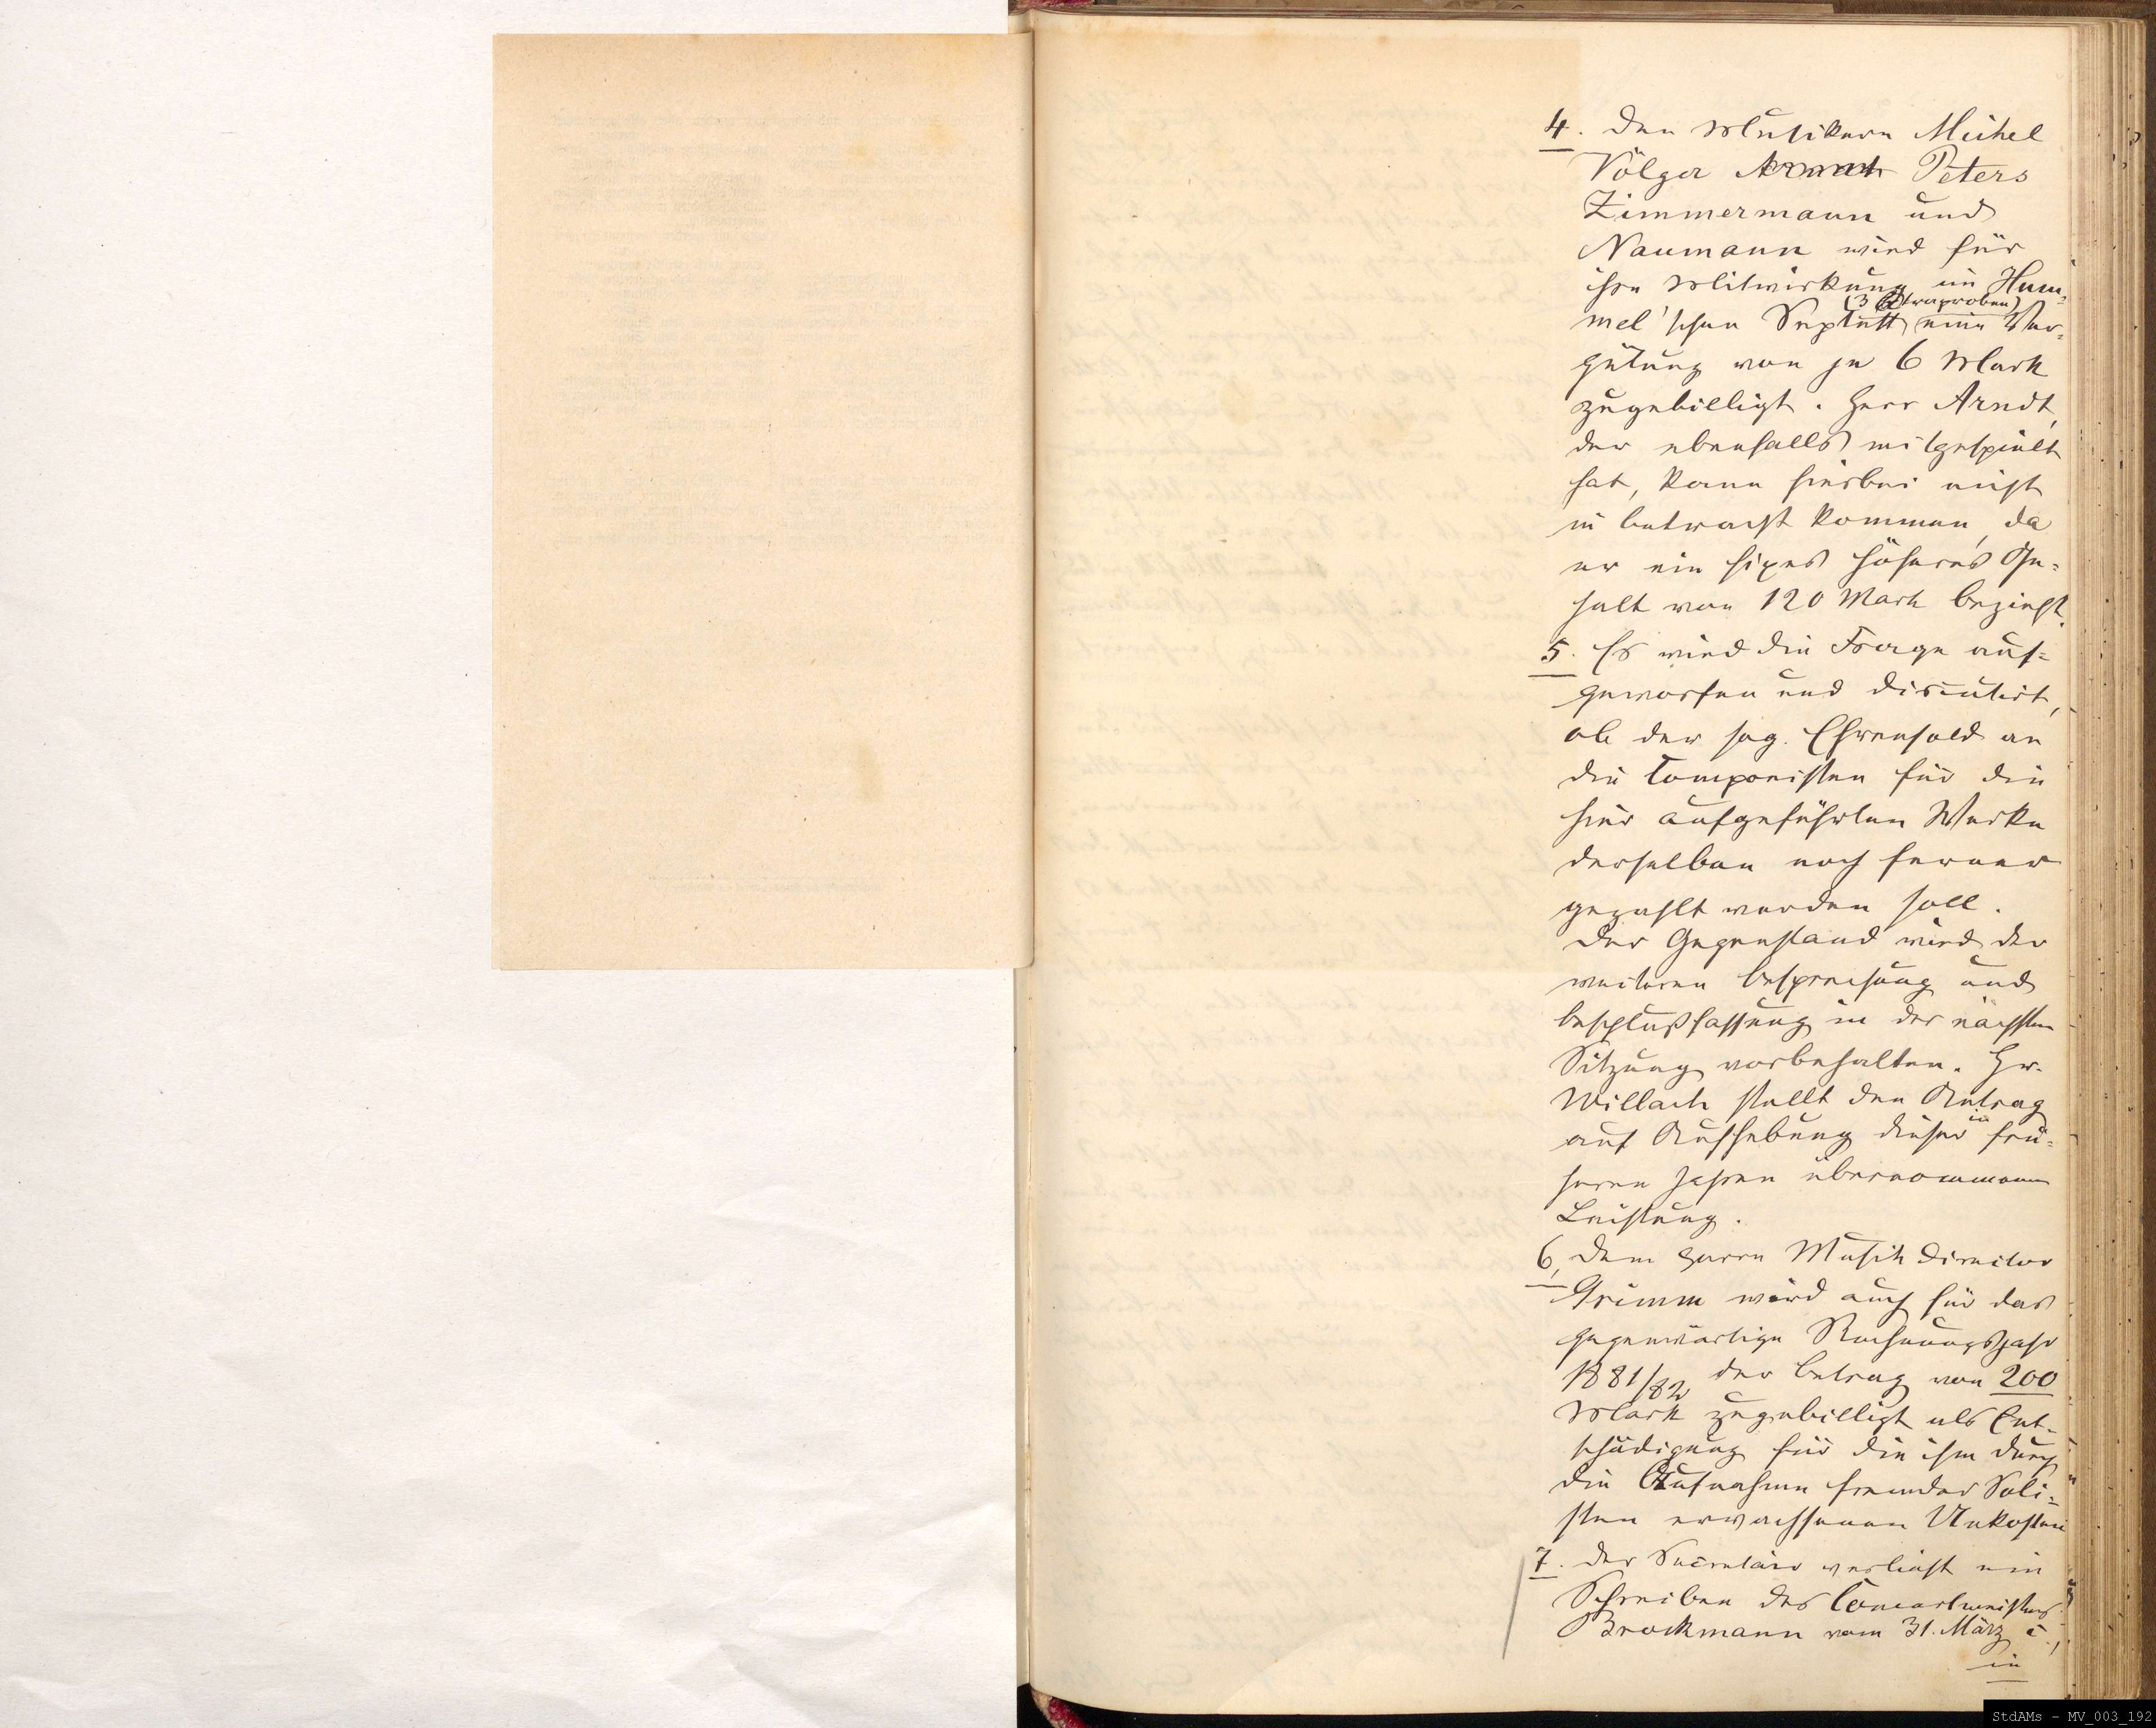 4. Den Musikern Michel
Völger Peters
Zimmermann und
Naumann wird für
ihre Mitwirkung im Hum-
(3 Extraproben)
mel'schen Septett eine Ver-
gütung von je 6 Mark
zugebilligt. Herr Arndt,
der ebenfalls mitgespielt
hat, kann hierbei nicht
in betracht kommen, da
er ein fixes höheres Ge-
halt von 120 Mark bezieht.
5. Es wird die Frage auf-
geworfen und discutirt,
ob der sog. Ehrensold an
die Componisten für die
hier aufgeführten Werke
derselben noch ferner
gezahlt werden soll.
Der Gegenstand wird der
weiteren besprechung und
beschlußfassung in der nächsten
Sitzung vorbehalten. Hr.
Willach stellt den Antrag
auf Aufhebung dieser in frü-
heren Jahren übernommenen
Leistung.
6, Dem Herrn Musik Director
Grimm wird auch für das
gegenwärtige Rechnungsjahr
1881/82 der betrag von 200
Mark zugebilligt als Ent-
schädigung für die ihm durch
die Aufnahme fremder Soli-
sten erwachsenen Unkosten
7. Der Secretair verliest ein
Schreiben des Concertmeisters
Brockmann vom 31. März c.,
in
StdAMs - MV_003_192